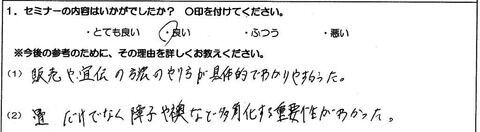 1. セミナーの内容はいかがでしたか？ ○印を付けてください。
・とても良い ・良い ・ふつう ・悪い
※今後の参考のために、その理由を詳しくお教えください。
(1) 販売や宣伝の方法のやり方が具体的でわかりやすかった。
(2) 畳だけでなく障子や襖など多角化する重要性がわかった。